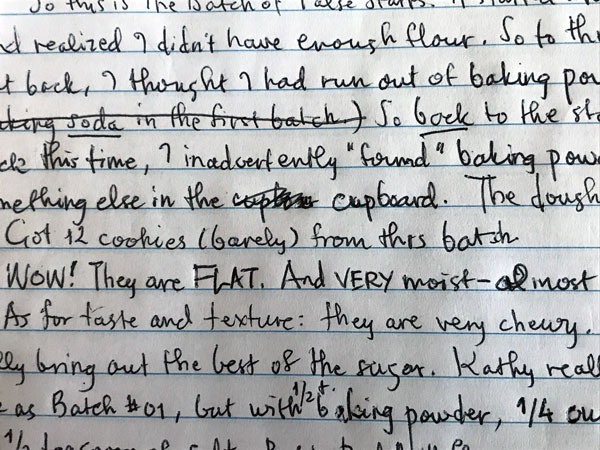 So this is the Batch of False Starts. I started
nd realized I didn't have enough flour. So to th
t back, I thought I had run out of baking pow
king soda in the first batch.) So back to the sto
ck this time, I inadvertently "found" baking powd
mething else in the cupboard. The dough
Got 12 cookies (barely) from this batch.
WOW! They are FLAT. And VERY moist - almost
As for taste and texture: they are very chewy.
lly bring out the best of the sugar. Kathy reall
as Batch #01, but with 1/2 t baking powder, 1/4 cu
1/2